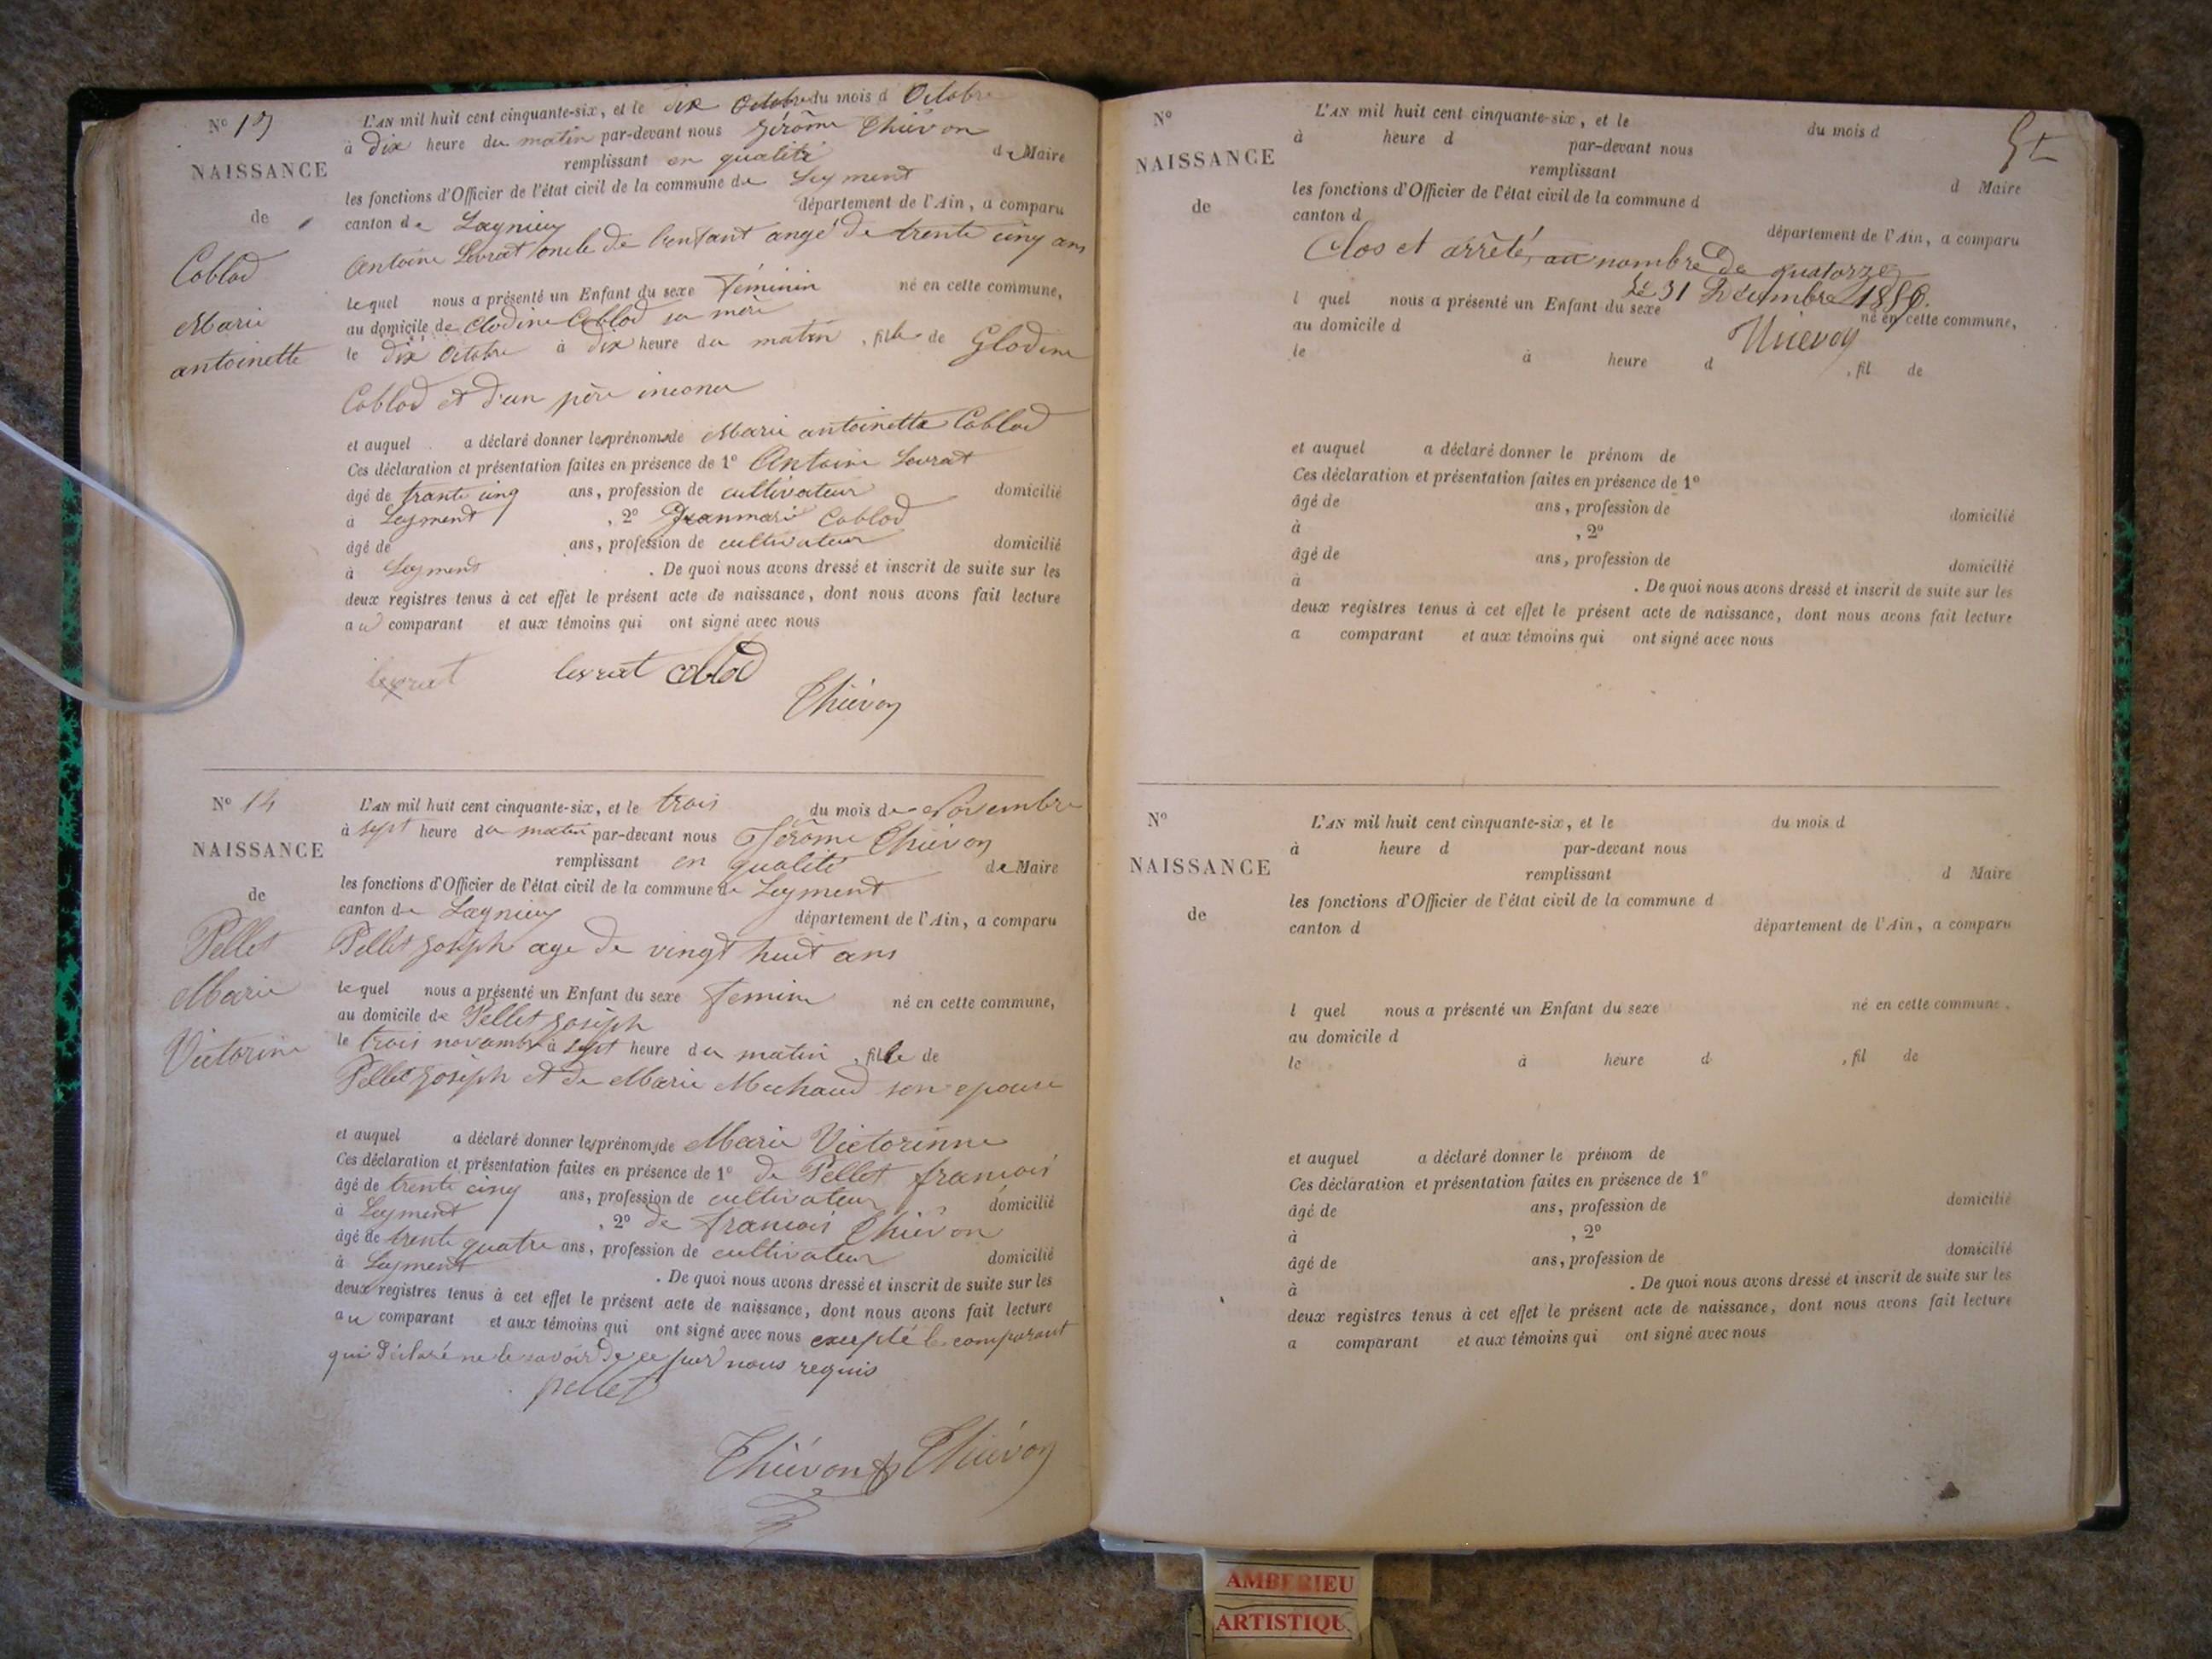 N° 13
NAISSANCE
de
Coblod
Marie
antoinette
L'AN mil huit cent cinquante-six, et le dix Octobre du mois d Octobre
à dix heure du matin par-devant nous Jérôme Thiévon
remplissant en qualité de Maire
les fonctions d'Officier de l'état civil de la commune de Leyment
canton de Lagnieu département de l'Ain, a comparu
Antoine Levrat oncle de l'enfant angé de trente cinq ans
lequel nous a présenté un Enfant du sexe Féminin né en cette commune,
au domicile de Clodine Coblod sa mère
le dix Octobre à dix heure du matin, fille de Glodine
Coblod et d'un père inconu
et auquel a déclaré donner les prénoms de Marie antoinette Coblod
Ces déclaration et présentation faites en présence de 1° Antoine Levrat
âgé de trante cinq ans, profession de cultivateur domicilié
à Leyment, 2° Jeanmarie Coblod
âgé de ans, profession de cultivateur domicilié
à Leyment. De quoi nous avons dressé et inscrit de suite sur les
deux registres tenus à cet effet le présent acte de naissance, dont nous avons fait lecture
au comparant et aux témoins qui ont signé avec nous
levrat levrat coblod
Thiévon
N° 14
NAISSANCE
de
Pellet
Marie
Victorine
L'AN mil huit cent cinquante-six, et le trois du mois de Novembre
à sept heure du matin par-devant nous Jérôme Thiévon
remplissant en qualité de Maire
les fonctions d'Officier de l'état civil de la commune de Leyment
canton de Lagnieu département de l'Ain, a comparu
Pellet Joseph age de vingt huit ans
lequel nous a présenté un Enfant du sexe Feminin né en cette commune,
au domicile de Pellet Joseph
le trois novambre à sept heure du matin, fille de
Pellet Joseph et de Marie Michaud son epouse
et auquel a déclaré donner les prénoms de Marie Victorinne
Ces déclaration et présentation faites en présence de 1° de Pellet francois
âgé de trente cinq ans, profession de cultivateur domicilié
à Leyment, 2° de francois Thiévon
âgé de trente quatre ans, profession de cultivateur domicilié
à Leyment. De quoi nous avons dressé et inscrit de suite sur les
deux registres tenus à cet effet le présent acte de naissance, dont nous avons fait lecture
au comparant et aux témoins qui ont signé avec nous excepté le comparant
qui déclaré ne le savoir de ce par nous requis
pellet
Thiévon Thiévon
N°
NAISSANCE
de
L'AN mil huit cent cinquante-six, et le du mois d
à heure d par-devant nous
remplissant d Maire
les fonctions d'Officier de l'état civil de la commune d
canton d département de l'Ain, a comparu
Clos et arrêté au nombre de quatorze
le 31 Décembre 1856.
l quel nous a présenté un Enfant du sexe né en cette commune,
au domicile d Thiévon
le à heure d , fil de
et auquel a déclaré donner le prénom de
Ces déclaration et présentation faites en présence de 1°
âgé de ans, profession de domicilié
à , 2°
âgé de ans, profession de domicilié
à . De quoi nous avons dressé et inscrit de suite sur les
deux registres tenus à cet effet le présent acte de naissance, dont nous avons fait lecture
a comparant et aux témoins qui ont signé avec nous
N°
NAISSANCE
de
L'AN mil huit cent cinquante-six, et le du mois d
à heure d par-devant nous
remplissant d Maire
les fonctions d'Officier de l'état civil de la commune d
canton d département de l'Ain, a comparu
l quel nous a présenté un Enfant du sexe né en cette commune,
au domicile d
le à heure d , fil de
et auquel a déclaré donner le prénom de
Ces déclaration et présentation faites en présence de 1°
âgé de ans, profession de domicilié
à , 2°
âgé de ans, profession de domicilié
à . De quoi nous avons dressé et inscrit de suite sur les
deux registres tenus à cet effet le présent acte de naissance, dont nous avons fait lecture
a comparant et aux témoins qui ont signé avec nous
AMBERIEU
ARTISTIQUE